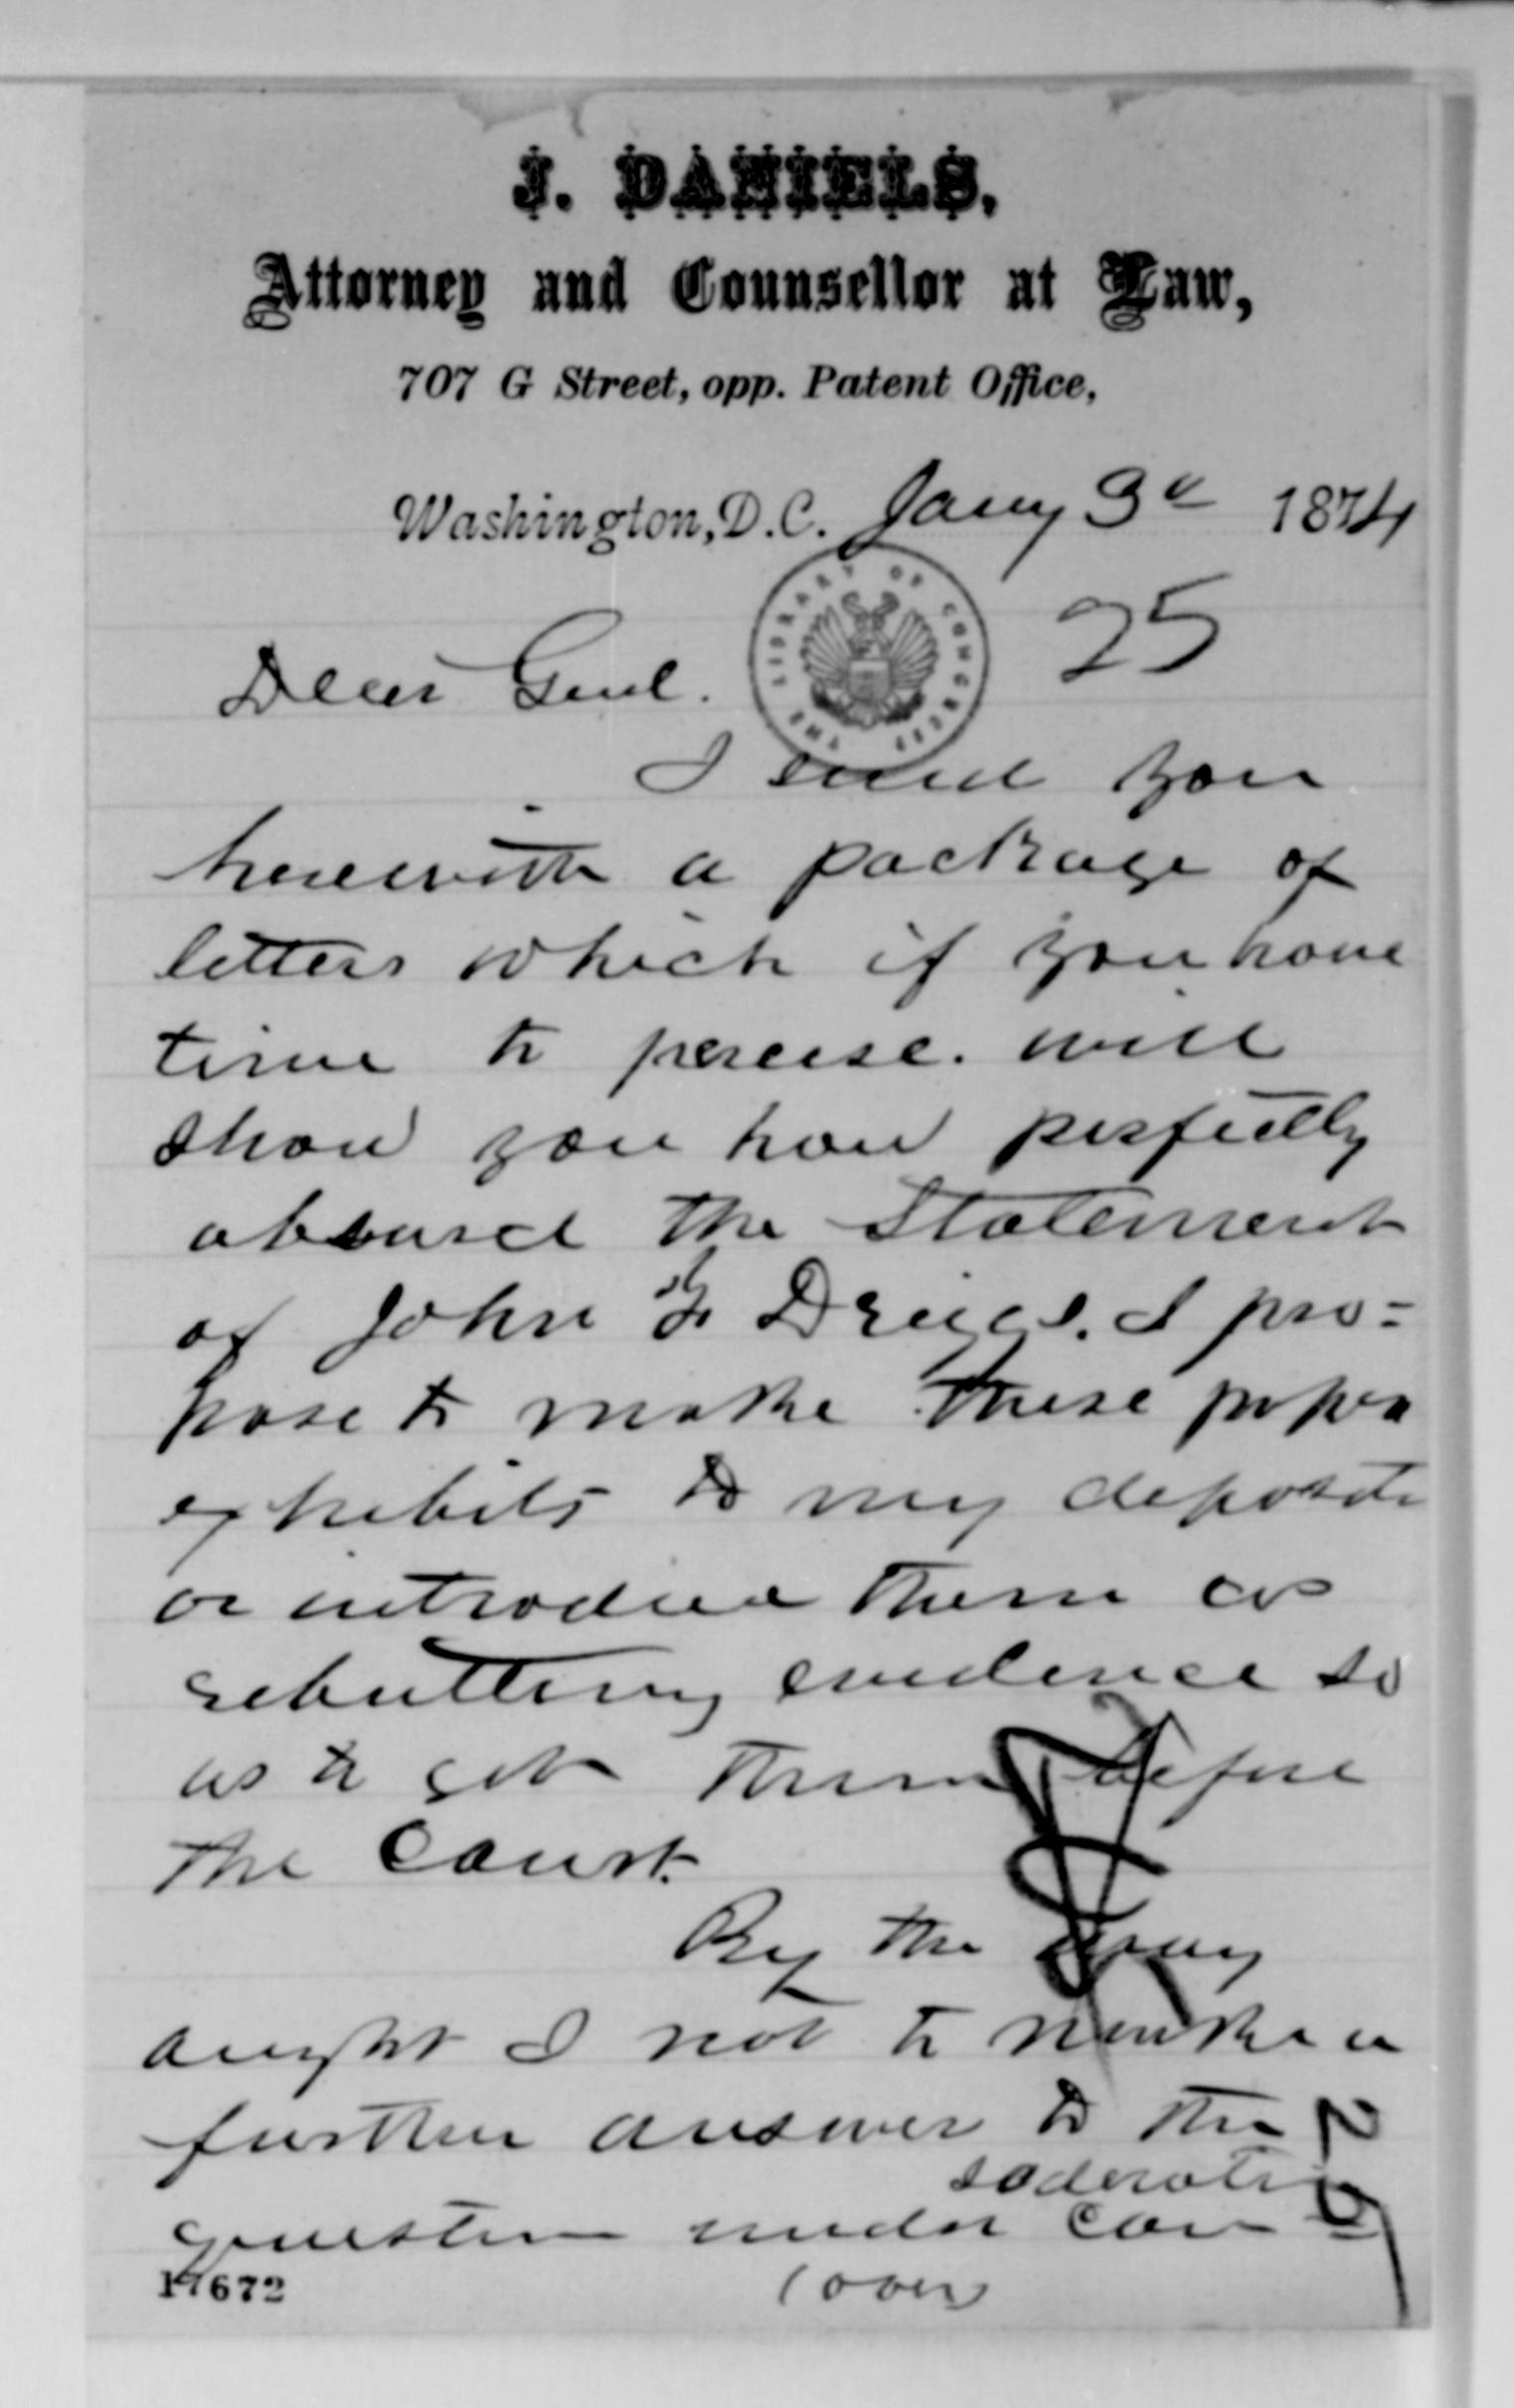 J. DANIELS,
Attorney and Counsellor at Law,
707 G Street, opp. Patent Office,
Washington, D.C. Jany 3d 1874
THE LIBRARY OF CONGRESS
25
Dear Genl.
I send you
herewith a package of
letters which if you have
time to peruse. will
show you how perfectly
absurd the statement
of John F Driggs. I pro=
pose to make these papers
exhibits to my
or introduce them as
rebutting evidence so
as to get them before
the Court.
By the way
ought I not to make a
further answer to the
sideration
question under con
17672
(over